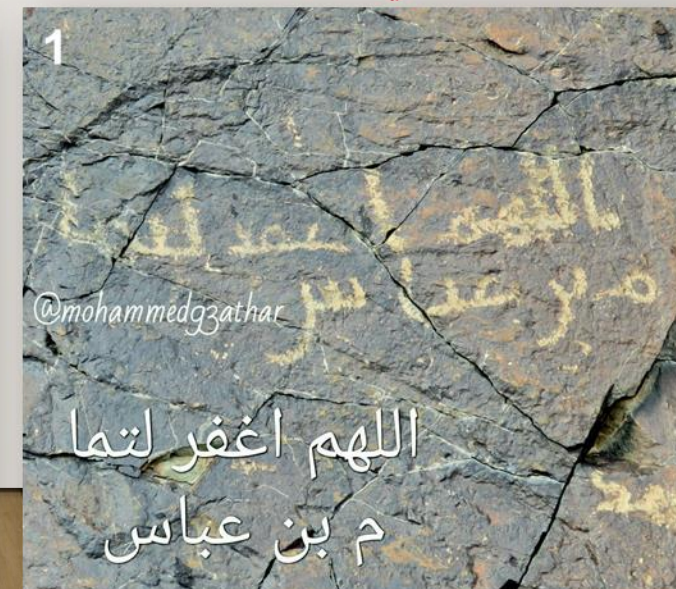 1
اللهم اغفر لتما
م بن عباس
@mohammedg3athar
اللهم اغفر لتما
م بن عباس